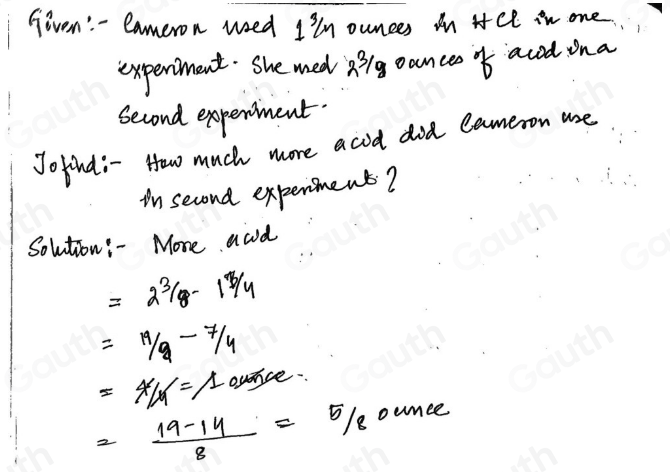 Given:- Cameron used 1 3/4 ounces in HCl in one
experiment. She used 2 3/8 ounces of acid in a
second experiment.
To find:- How much more acid did Cameron use
in second experiment?
Solution:- More acid
= 2 3/8 - 1 3/4
= 19/8 - 7/4
= 4/4 = 1 ounce.
= 19-14 / 8 = 5/8 ounce
Gauth
Gauth
Gauth
Gauth
Gauth
Gauth
Gauth
Gauth